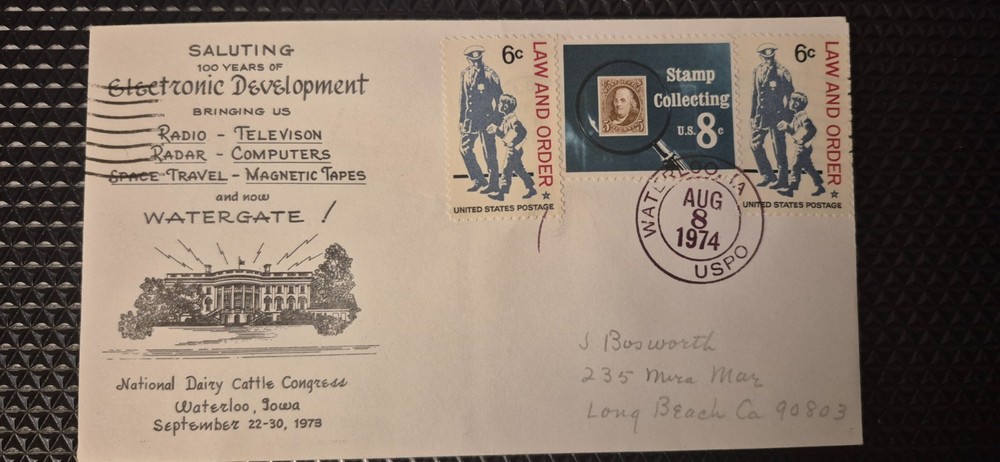 SALUTING
100 YEARS OF
Electronic Development
BRINGING US
RADIO - TELEVISON
RADAR - COMPUTERS
SPACE TRAVEL - MAGNETIC TAPES
and now
WATERGATE!
National Dairy Cattle Congress
Waterloo, Iowa
September 22-30, 1973
6c
LAW AND ORDER
UNITED STATES POSTAGE
Stamp
Collecting
U.S. 8c
5
5
6c
LAW AND ORDER
UNITED STATES POSTAGE
WATERLOO, IA
AUG
8
1974
USPO
J Bosworth
235 Mira Mar
Long Beach Ca 90803